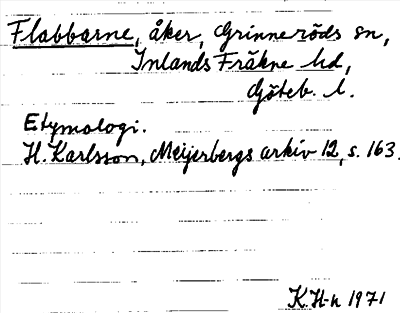 Flabbarne, åker, Grinneröds sn,
Inlands Fräkne hd,
Göteb. l.
Etymologi.
H. Karlsson, Meijerbergs arkiv 12, s. 163.
K. H-n 1971